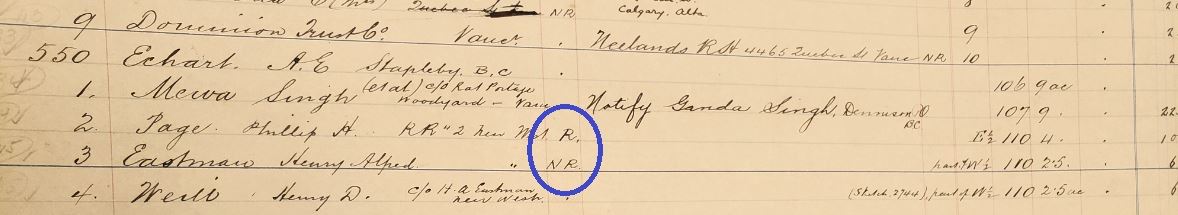 Quebec NR Calgary, Alta. 8
9 Dominion Trust Co. Vancr. Neelands R H 4465 Quebec St Vanc NR 9 2
550 Echart. A. E Stapleby, B.C 10 2
1. Mewa Singh (et al) c/o Rat Portage Woodyard - Vanc Notify Ganda Singh, Dennison PO BC 106 9ac 107 9 22
2. Page. Phillip H. RR "2 New West. R. E½ 110 4. 10
3 Eastman Henry Alfred. " NR. part of W½ 110 2.5. 6
4. Weill Henry D. c/o H. A Eastman New Westr. (Sketch 2744), part of W½ 110 2.5ac 6